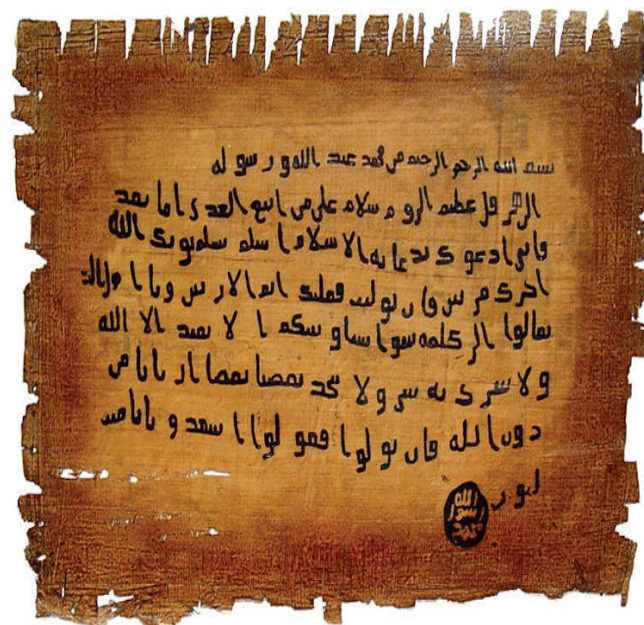 بسم الله الرحمن الرحيم من محمد عبد الله و رسوله
الى هرقل عظيم الروم سلام على من اتبع الهدى اما بعد
فانى ادعوك بدعاية الاسلام اسلم تسلم يوتك الله
اجرك مرتين فان توليت فعليك اثم الاريسين ويا اهل الكتب
تعالوا الى كلمة سوا بيننا وبينكم ا لا نعبد الا الله
ولا نشرك به شيا ولا يتخذ بعضنا بعضا اربابا من
دون الله فان تولوا فقولوا اشهدوا بانا مسلمون
الله
رسول
محمد